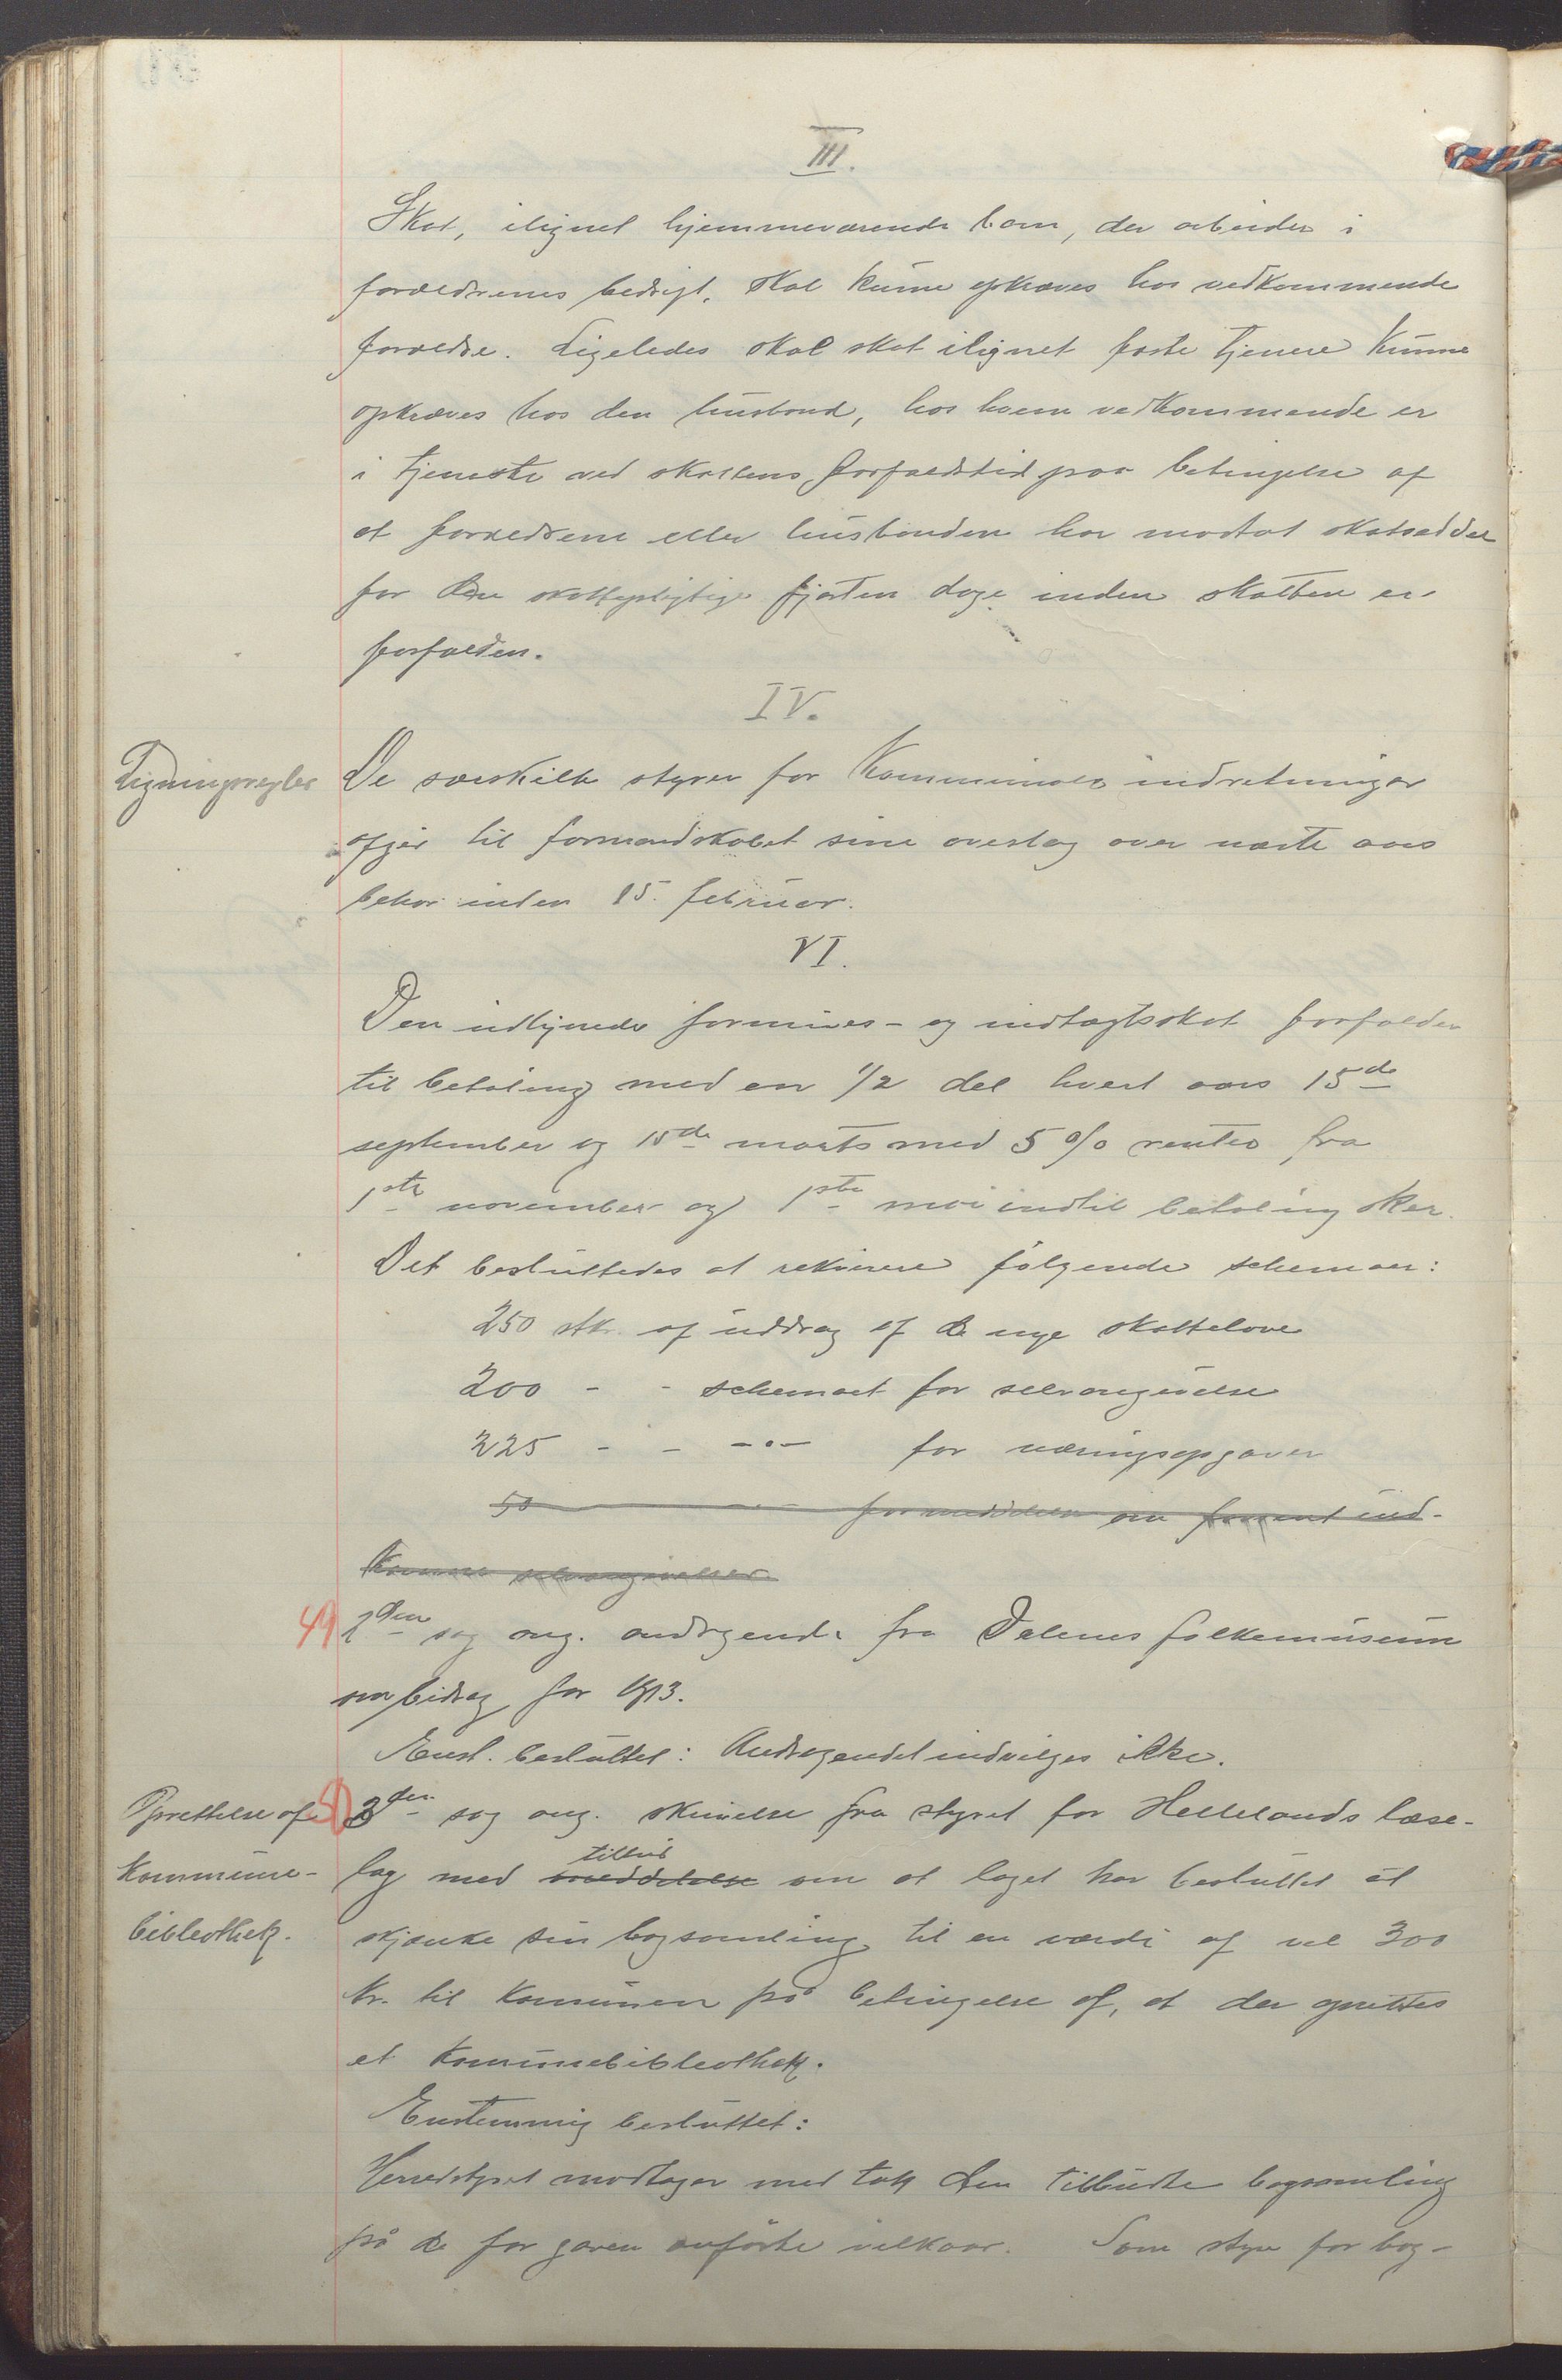 III.
Skat, ilignet hjemmeværende barn, der arbeider i
forældrenes bedrift, skal kunne opkræves hos vedkommende
forældre. Ligeledes skal skat ilignet faste tjenere kunne
opkræves hos den husbond, hos hvem vedkommende er
i tjeneste ved skattens forfaldstid paa betingelse af
at forældrene eller husbonden har modtat skatseddel
for den skattepligtige fjorten dage inden skatten er
forfalden.
IV.
Ligningsregler
De særskilte styrer for kommunale indretninger
afgir til formandskabet sine overslag over næste aars
behov inden 15. februar.
VI.
Den udlignede formues- og indtægtsskat forfalder
til betaling med en 1/2 del hvert aars 15de
september og 15de marts med 5 % renter fra
1ste november og 1ste mai indtil betaling sker.
Det besluttedes at rekvirere følgende schemaer:
250 stk. af uddrag af de nye skattelove
200 - - schemaet for selvangivelse
225 - - -"- for næringsopgaver
50 for meddelelse om forment ind-
komne selvangivelser.
49 2den sag ang. andragende fra Dalenes folkemuseum
om bidrag for 1913.
Enst. besluttet: Andragendet indvilges ikke.
Oprettelse af
kommune-
bibliothek.
50 3die sag ang. skrivelse fra styret for Hellelands læse-
lag med meddelelse tilbud om at laget har besluttet at
skjænke sin bogsamling til en værdi af vel 300
kr. til kommunen på betingelse af, at der oprettes
et kommunebibliothek.
Enstemmig besluttet:
Herredstyret modtager med tak den tilbudte bogsamling
på de for gaven anførte vilkaar. Som styre for bog-